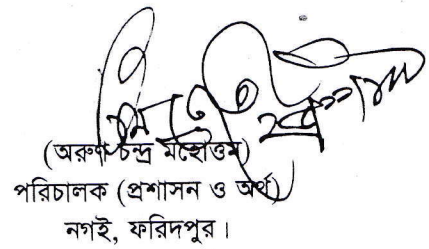 (অরুণ চন্দ্র মহোত্তম)
পরিচালক (প্রশাসন ও অর্থ)
নগই, ফরিদপুর।